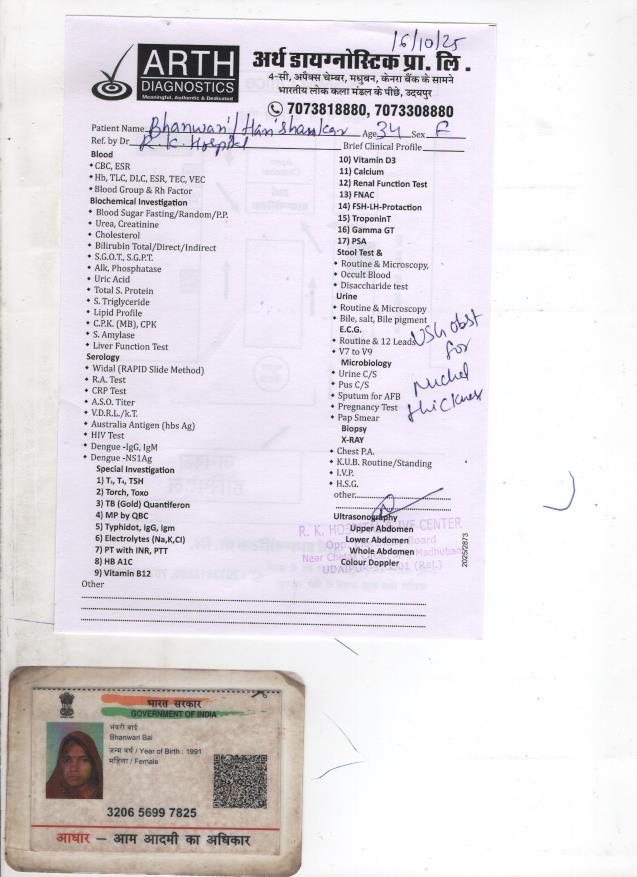 16/10/25
ARTH
DIAGNOSTICS
Meaningful, Authentic & Dedicated
अर्थ डायग्नोस्टिक प्रा. लि .
4-सी, अपैक्स चेम्बर, मधुबन, केनरा बैंक के सामने
भारतीय लोक कला मंडल के पीछे, उदयपुर
7073818880, 7073308880
Patient Name Bhanwari / Harishankar Age 34 Sex F
Ref. by Dr. R.K. Hospital Brief Clinical Profile
Blood
CBC, ESR
Hb, TLC, DLC, ESR, TEC, VEC
Blood Group & Rh Factor
Biochemical Investigation
Blood Sugar Fasting/Random/P.P.
Urea, Creatinine
Cholesterol
Bilirubin Total/Direct/Indirect
S.G.O.T., S.G.P.T.
Alk, Phosphatase
Uric Acid
Total S. Protein
S. Triglyceride
Lipid Profile
C.P.K. (MB), CPK
S. Amylase
Liver Function Test
Serology
Widal (RAPID Slide Method)
R.A. Test
CRP Test
A.S.O. Titer
V.D.R.L./k.T.
Australia Antigen (hbs Ag)
HIV Test
Dengue -IgG, IgM
Dengue -NS1Ag
Special Investigation
1) T₃, T₄, TSH
2) Torch, Toxo
3) TB (Gold) Quantiferon
4) MP by QBC
5) Typhidot, IgG, Igm
6) Electrolytes (Na,K,Cl)
7) PT with INR, PTT
8) HB A1C
9) Vitamin B12
Other
10) Vitamin D3
11) Calcium
12) Renal Function Test
13) FNAC
14) FSH-LH-Protaction
15) TroponinT
16) Gamma GT
17) PSA
Stool Test &
Routine & Microscopy,
Occult Blood
Disaccharide test
Urine
Routine & Microscopy
Bile, salt, Bile pigment
E.C.G.
Routine & 12 Leads
V7 to V9
Microbiology
Urine C/S
Pus C/S
Sputum for AFB
Pregnancy Test
Pap Smear
Biopsy
X-RAY
Chest P.A.
K.U.B. Routine/Standing
I.V.P.
H.S.G.
other
Ultrasonography
Upper Abdomen
Lower Abdomen
Whole Abdomen
Colour Doppler
USG obst
for
Nuchal
thickness
R. K. HOS CENTER
Opp Board
Near Che Madhuban
UDAIPUR 001 (Raj.)
2025/2873
भारत सरकार
GOVERNMENT OF INDIA
भंवरी बाई
Bhanwari Bai
जन्म वर्ष / Year of Birth : 1991
महिला / Female
3206 5699 7825
आधार – आम आदमी का अधिकार